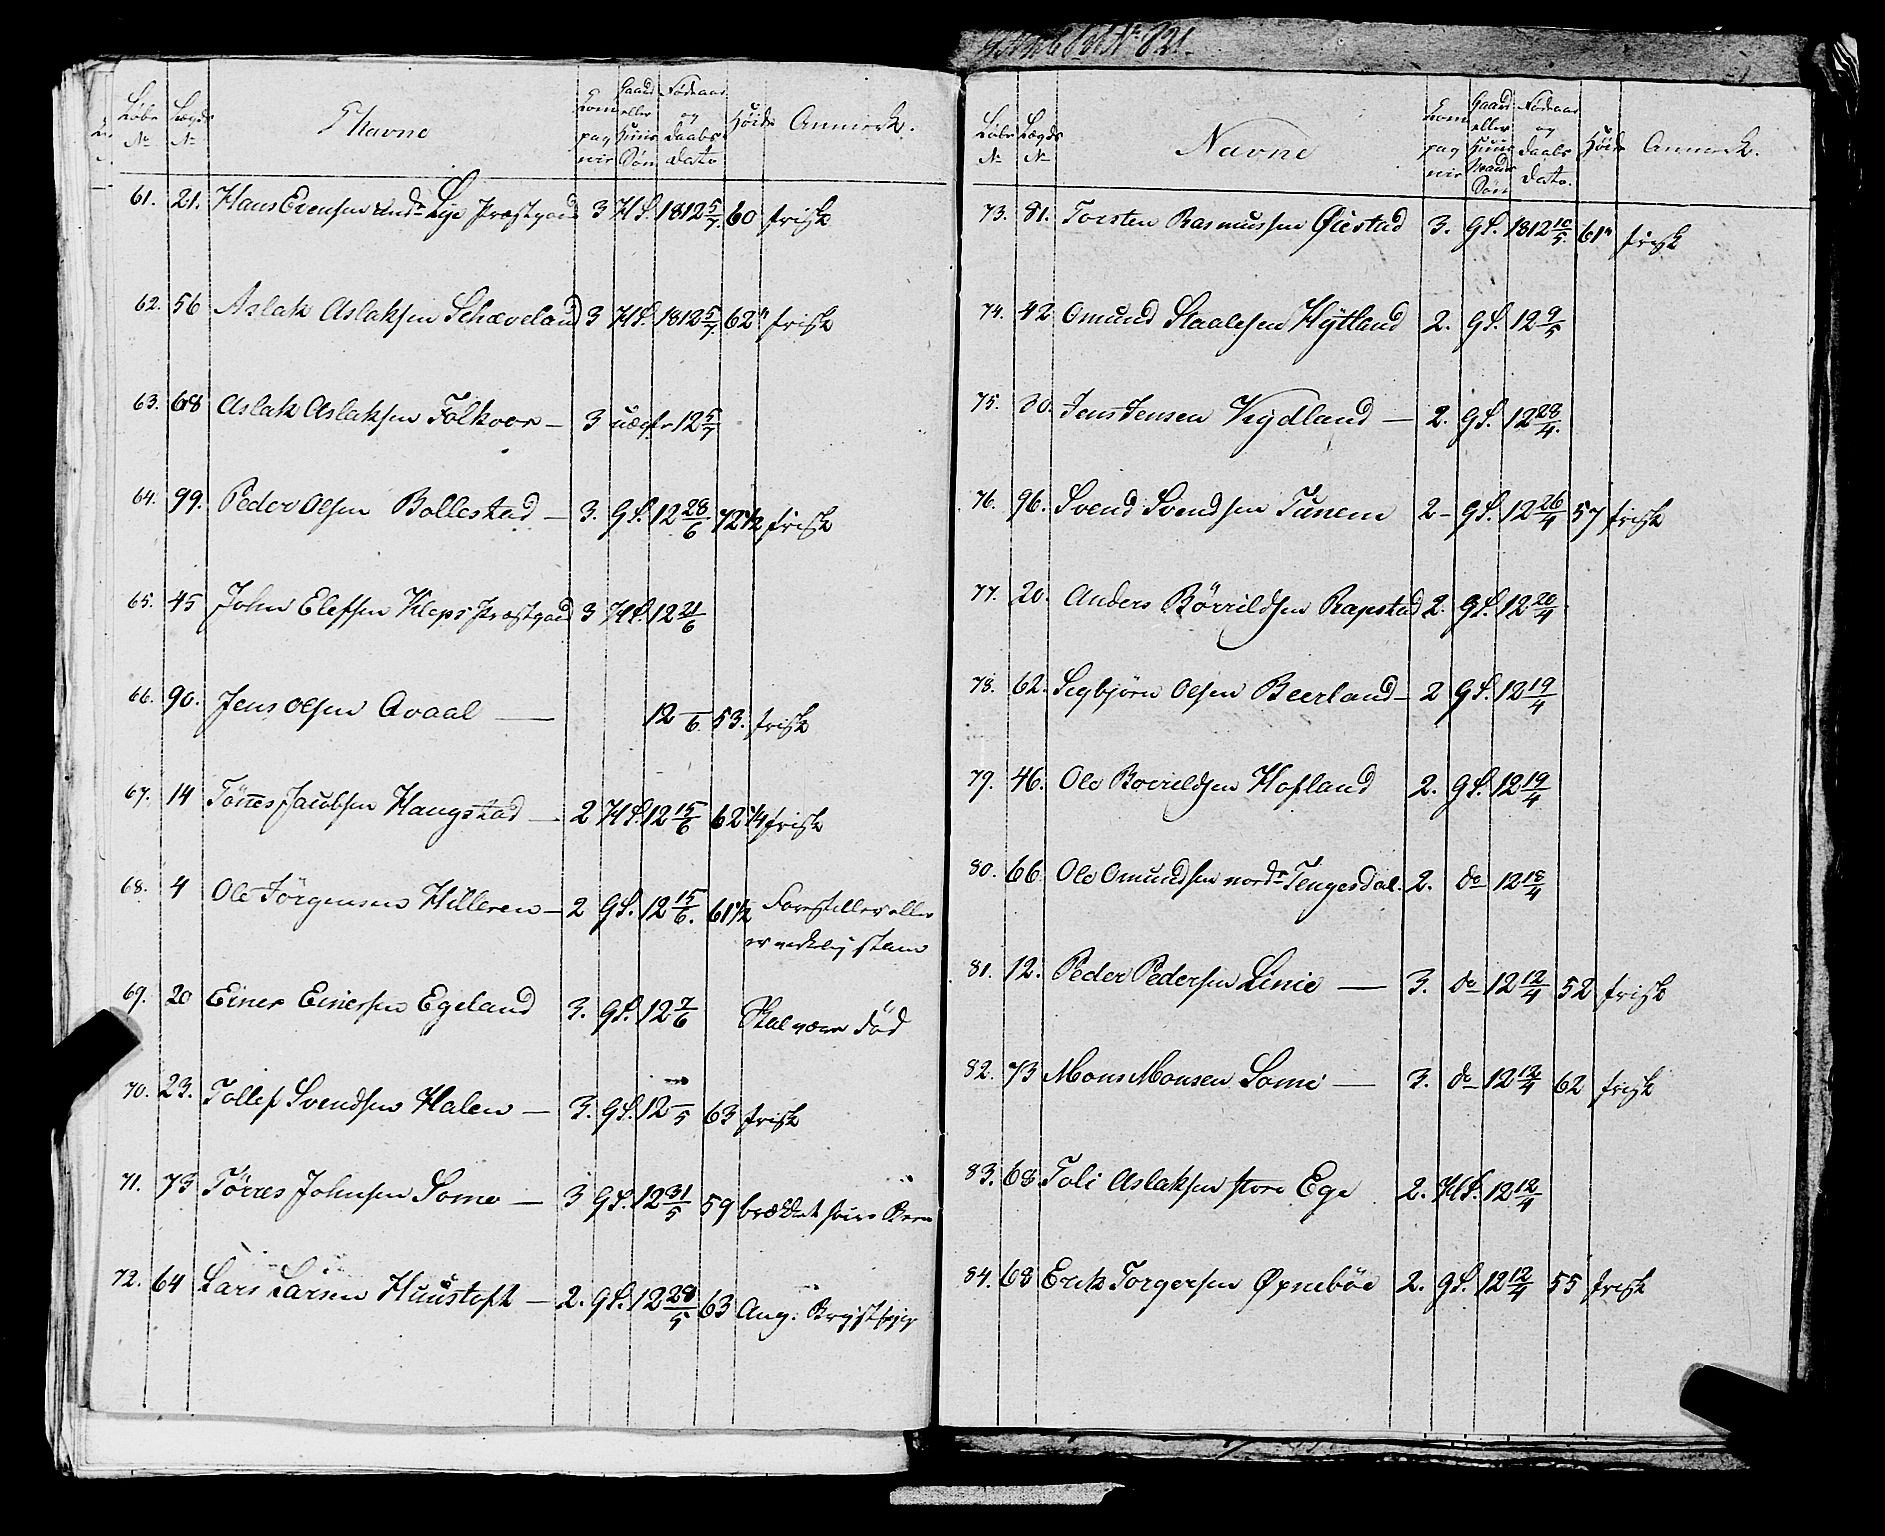 Løbe No Lægds No Navne Kompagnie Gaard eller Huus Søn Fødeaar og Daabs Dato Høide Anmærk.
61. 21. Hans Evensen Lye Præstgaard 3 HS. 1812 5/7 60 frisk
62. 56 Aslak Aslaksen Schæveland 3 HS. 1812 5/7 62" frisk
63. 68 Aslak Aslaksen Folkvor — 3 uægte 12 5/7
64. 99. Peder Olsen Bollestad — 3. GS. 12 28/6 72 1/2 frisk
65. 45 John Elefsen Kleps Præstgaard 3 HS. 12 21/6
66. 90. Jens Olsen Avaal — 12 –/6. 53. frisk
67. 14 Törres Jacobsen Haugstad — 2 HS. 12 15/6 62 1/4 frisk
68. 4 Ole Jörgensen Hilleren — 2 GS. 12 15/6. 61 1/2 Forestiller eller
er virkelig stam
69. 20 Einer Einersen Egeland 3. GS. 12 7/6 Skal være död
70. 23. Tollef Svendsen Halen — 3. GS. 12 –/5 63 frisk
71. 73 Törres Johnsen Some — 3 GS. 12 31/5 59 brækket høire Been
72. 64 Lars Larsen Huustoft — 2. GS. 12 28/5 63 Ang. Brystsyg
No 821.
Løbe No Lægds No Navne Kompagnie Gaard eller Huus Mands Søn Fødeaar og Daabs Dato. Høide Anmærk.
73. 81. Torsten Rasmussen Øiestad 3. GS. 1812 10/5. 61" frisk
74. 42 Omund Staalesen Hytland 2. GS. 12 9/5
75. 30. Jens Jensen Vigdland — 2. GS. 12 28/4.
76. 96. Svend Svendsen Tunem 2 – GS. 12 26/4 57 frisk
77. 20. Anders Börrildsen Rapstad 2. GS. 12 20/4
78. 62. Segbjörn Olsen Beerland — 2 GS. 12 19/4
79. 46. Ole Borrildsen Hofland 2. GS. 12 19/4
80. 66 Ole Omundsen nordr Tengesdal. 2. do 12 18/4
81. 12. Peder Pedersen Linie — 3. do 12 12/4 52 frisk
82. 73 Mons Monsen Somi — 3. do 12 12/4 62 frisk
83. 68 Toli Aslaksen store Ege 2. HS. 12 12/4
84. 68 Erik Torgersen Øpneböe 2. GS. 12 12/4 55 frisk